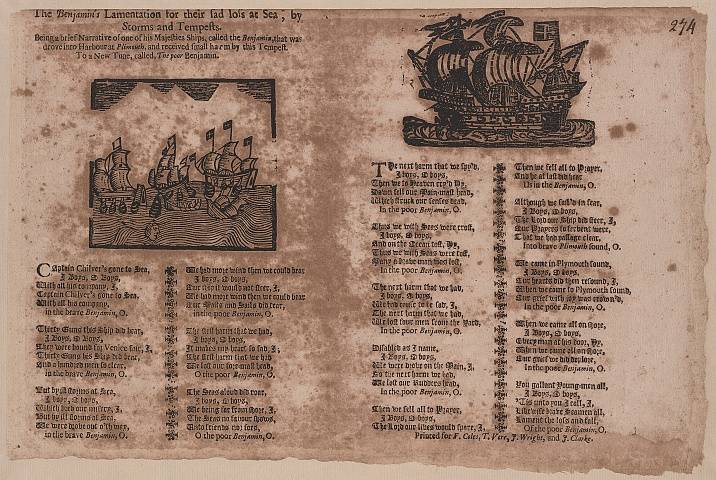 The Benjamin's Lamentation for their sad loss at Sea, by
Storms and Tempests.
Being a brief Narrative of one of his Majesties Ships, called the Benjamin, that was
drove into Harbour at Plimouth, and received small harm by this Tempest.
To a New Tune, called, The poor Benjamin.
Captain Chilver's gone to Sea,
I Boys, O Boys,
With all his company, I,
Captain Chilver's gone to Sea,
With all his company,
in the brave Benjamin, O.
Thirty Guns this Ship did bear,
I Boys, O Boys,
They were bound for Venice fair, I,
Thirty Guns this Ship did bear,
And a hundred men so clear,
in the brave Benjamin, O.
But by ill storms at Sea,
I boys, O boys,
Which bred our misery, I.
But by ill storms at Sea,
We were drove out o'th way,
in the brave Benjamin, O.
We had more wind then we could bear
I boys, O boys,
Our Ship it would not steer, I,
We had more wind then we could bear
Our Masts and Sails did tear,
in the poor Benjamin, O.
The first harm that we had,
I boys, O boys,
It makes my heart so sad, I;
The first harm that we had
We lost our fore-mast head,
O the poor Benjamin, O.
The Seas aloud did roar,
I boys, O boys,
We being far from shore, I,
The Seas no favour shows,
Unto friends nor foes,
O the poor Benjamin, O.
274
The next harm that we spy'd,
I boys, O boys,
Then we to Heaven cry'd, Hy,
Down fell our Main-mast head,
Which struck our senses dead,
In the poor Benjamin, O.
Thus we with Seas were crost,
I boys, O boys,
And on the Ocean tost, Hy,
Thus we with Seas were tost,
Many a brave man was lost,
In the poor Benjamin, O.
The next harm that we had,
I boys, O boys,
We had cause to be sad, I,
The next harm that we had,
We lost four men from the Yard,
In the poor Benjamin, O.
Disabled as I name,
I boys, O boys,
We were drove on the Main, I,
So the next harm we had,
We lost our Rudders head,
In the poor Benjamin, O.
Then we fell all to Prayer,
I Boys, O Boys,
The Lord our lives would spare, I,
Then we fell all to Prayer,
And he at last did hear
Us in the Benjamin, O.
Although we sail'd in fear,
I Boys, O Boys,
The Lord our Ship did steer, I,
Our Prayers so fervent were,
That we had passage clear,
Into brave Plimouth sound, O.
We came in Plymouth sound,
I Boys, O Boys,
Our hearts did then resound, I,
When we came to Plymouth sound,
Our grief with joy was crown'd,
In the poor Benjamin, O.
When we came all on shore,
I Boys, O Boys,
Every man at his door, Hy,
When we came all on shore,
Our grief we did deplore,
In the poor Benjamin, O.
You gallant Young-men all,
I Boys, O Boys,
'Tis unto you I call, I,
Likewise brave Seamen all,
Lament the loss and fall,
Of the poor Benjamin, O.
Printed for F. Coles, T. Vere, J. Wright, and J. Clarke.